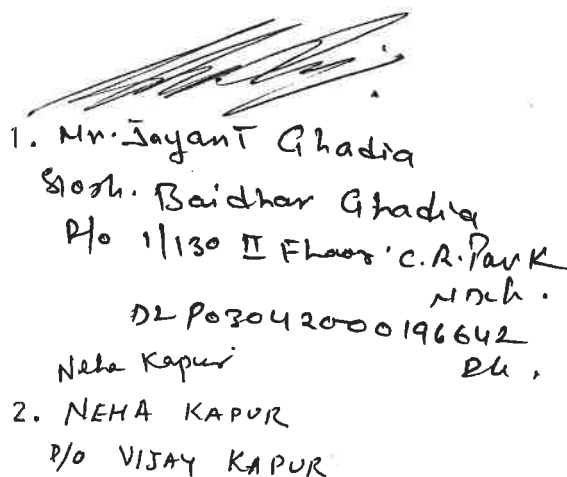 1. Mr. Jayant Ghadia
S/o Sh. Baidhar Ghadia
R/o 1/130 II Floor C.R. Park
N Delh.
DL P03042000196642
Neha Kapur Dl.
2. NEHA KAPUR
D/o VIJAY KAPUR